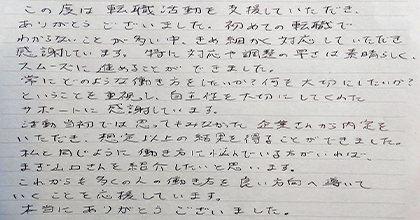 この度は転職活動を支援していただき、
ありがとうございました。初めての転職で
わからないことが多い中、きめ細かく対応していただき
感謝しています。特に対応や調整の早さは素晴らしく、
スムーズに進めることができました。
常にどのような働き方をしたいか?何を大切にしたいか?
ということを重視し、自主性を大切にしてくれた
サポートに感謝しています。
活動当初では思ってもみなかった企業さんから内定を
いただき、想定以上の結果を得ることができました。
私と同じように働き方に悩んでいる方がいれば、
まず山口さんを紹介したいと思います。
これからも多くの人の働き方を良い方向へ導いて
いくことを応援しています。
本当にありがとうございました。